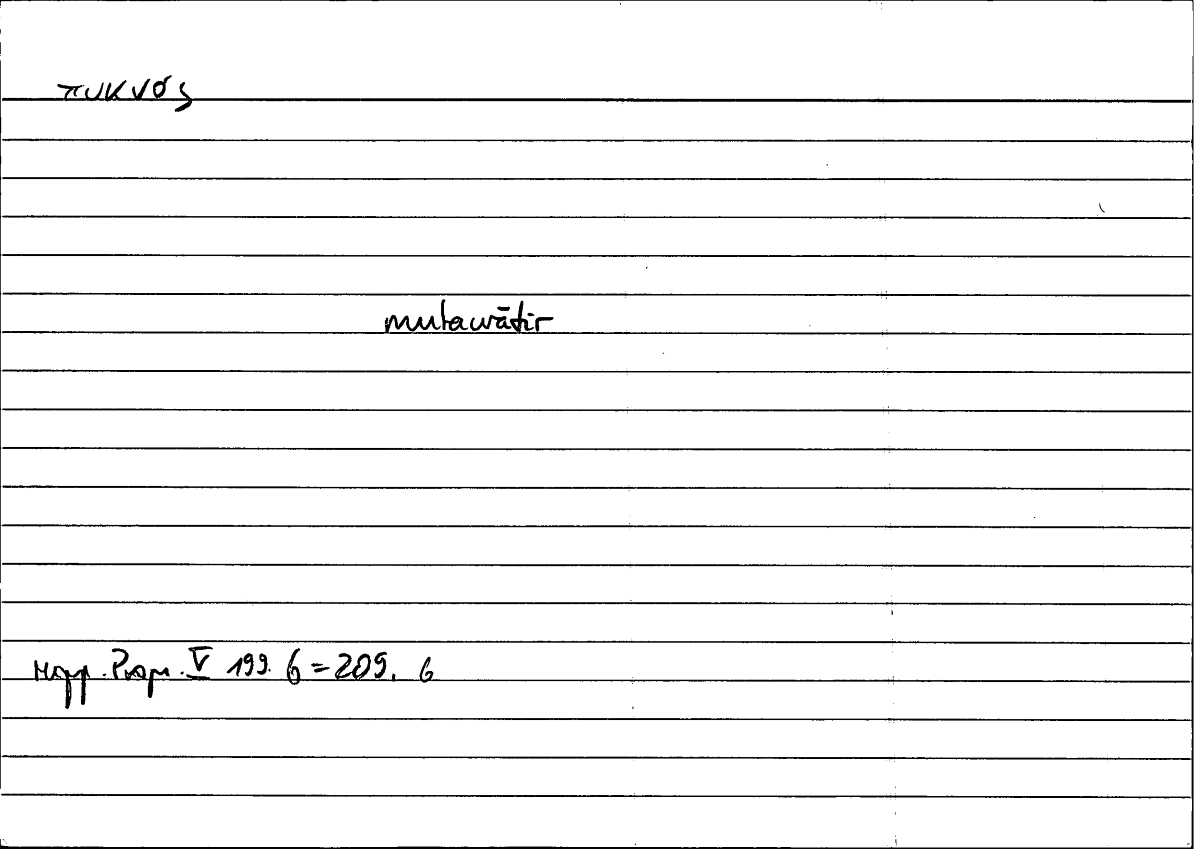 πυκνός
mutawātir
Hipp. Progn. V 199. 6 = 209. 6